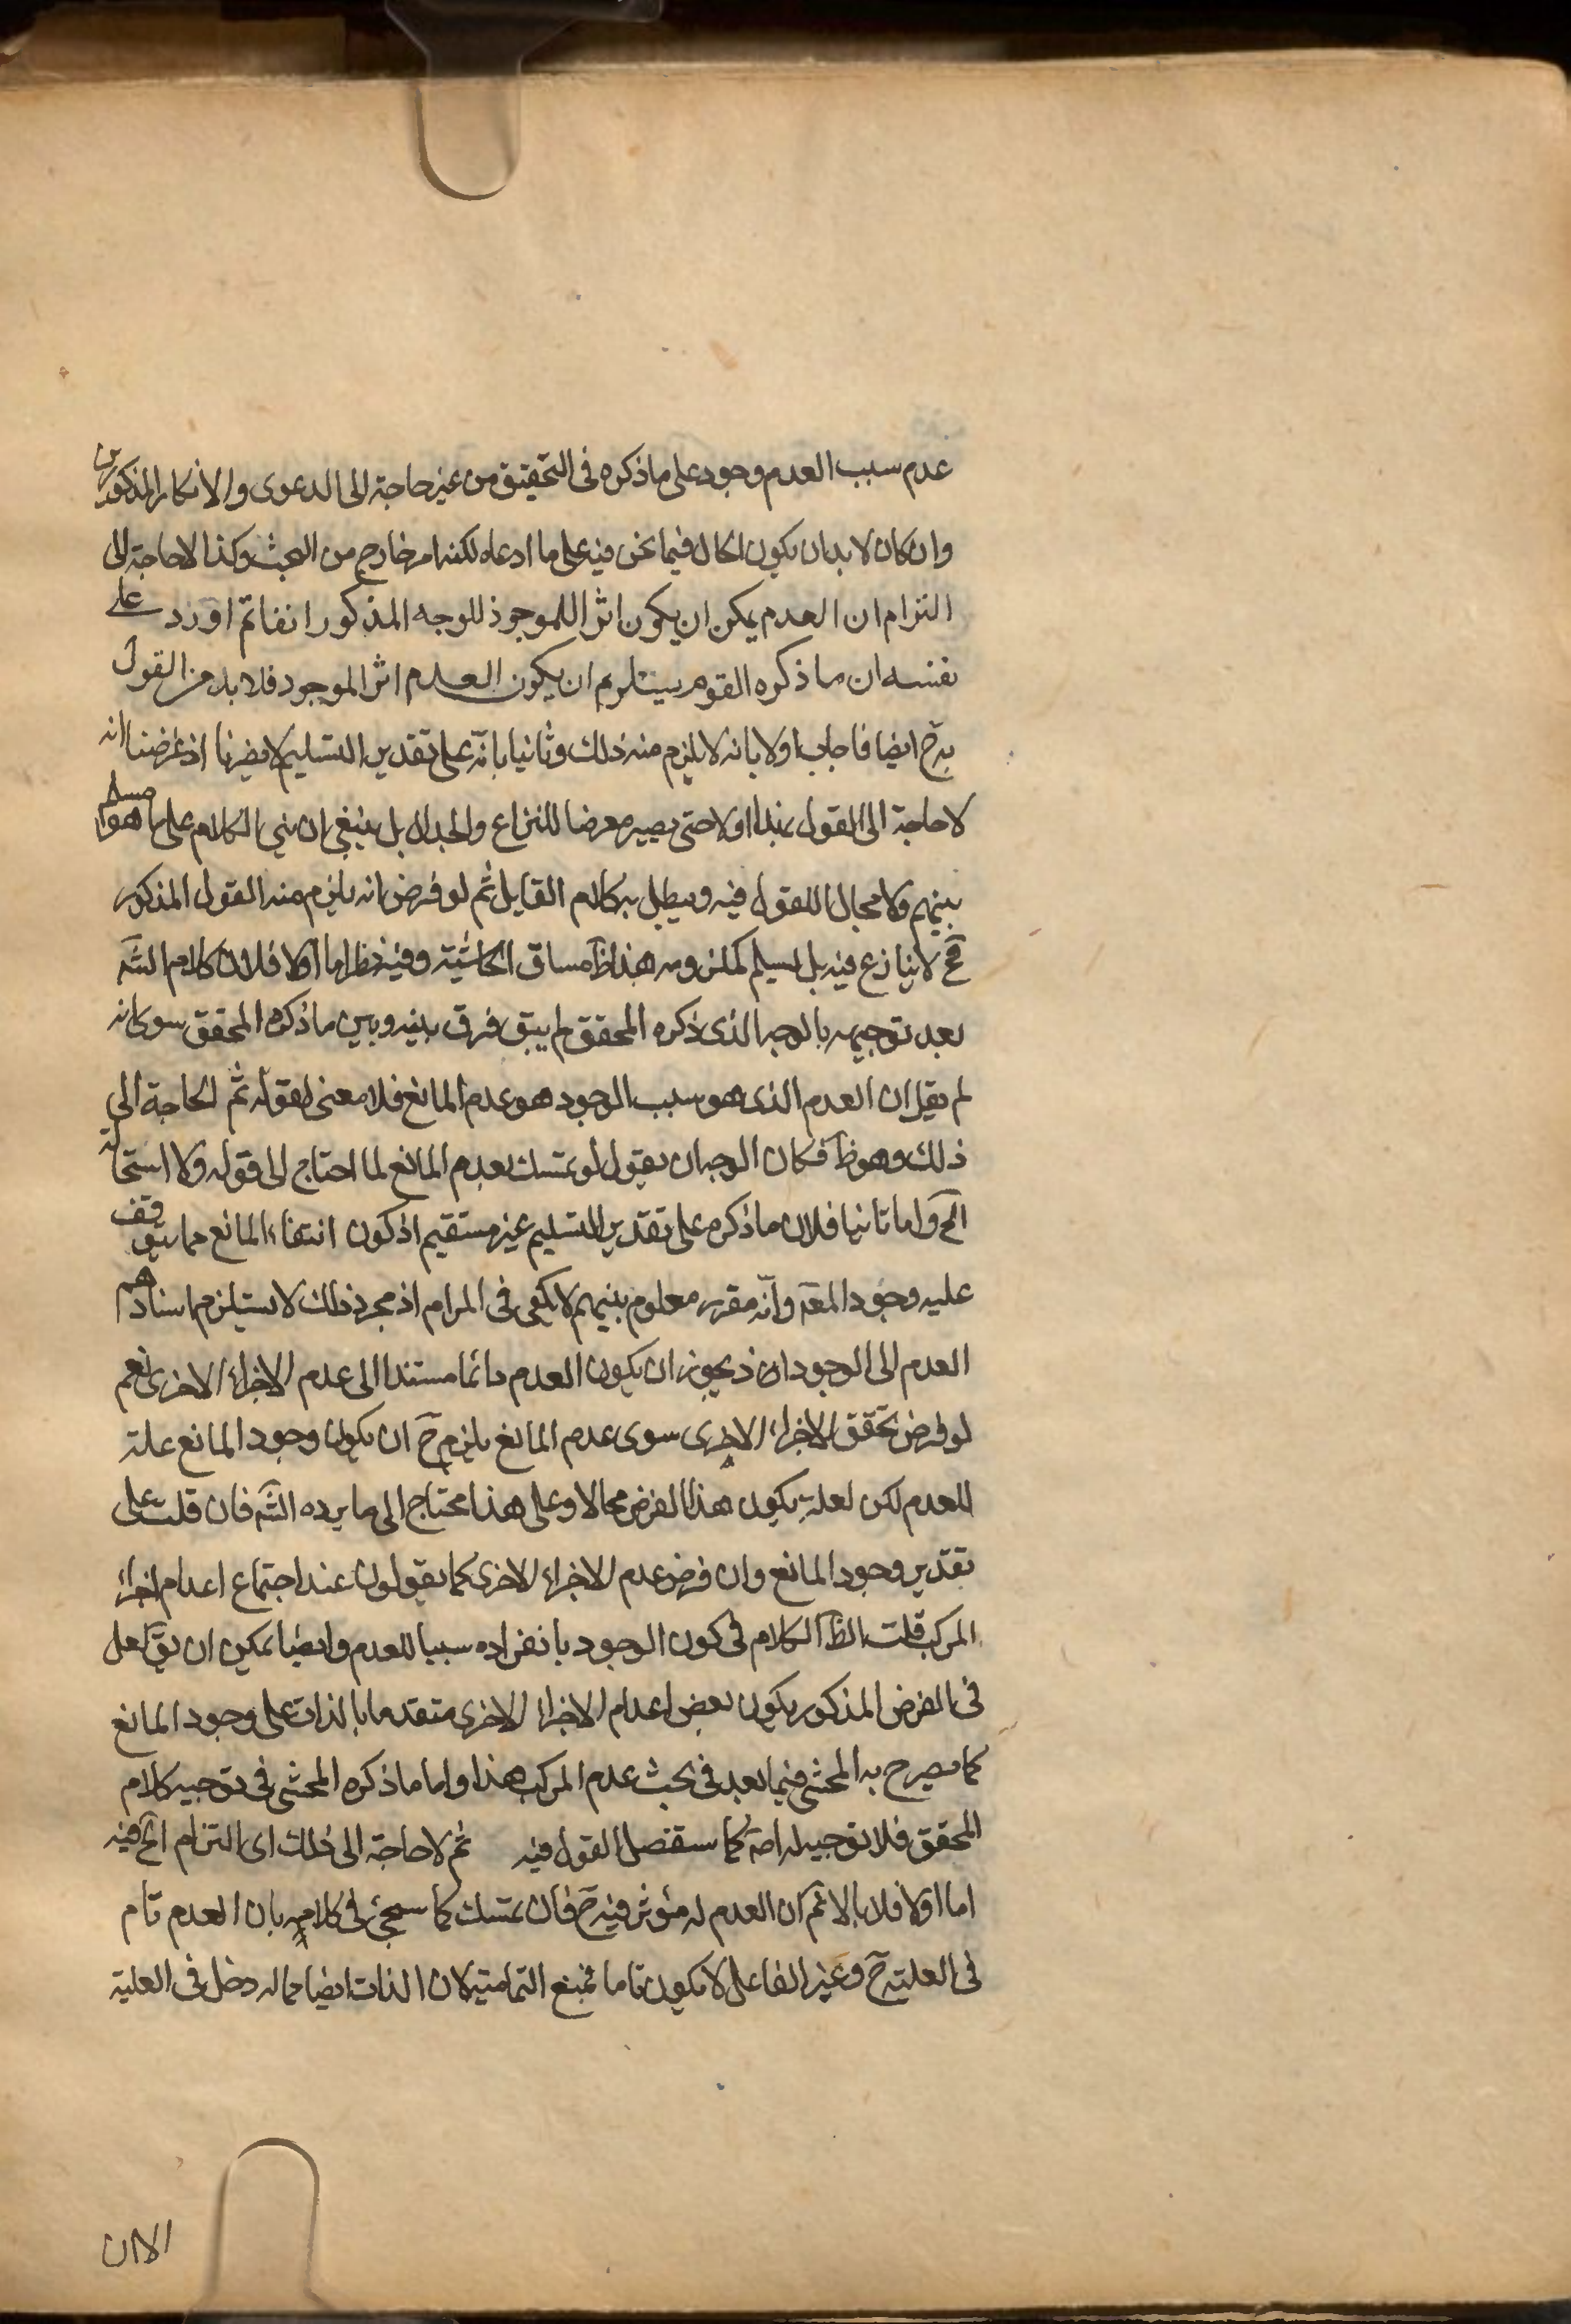 عدم سبب العدم وجود على ما ذكره فى التحقيق من غير حاجة الى الدعوى والانكار المذكورين
وان كان لا بد ان يكون الحال فيما نحن فيه على ما ادعاه لكنه امر خارج من البحث وكذا لا حاجة الى
التزام ان العدم يمكن ان يكون اثرا للموجود للوجه المذكور انفا ثم اورد على
نفسه ان ما ذكره القوم يستلزم ان يكون العدم اثر الموجود فلا بد من القول
به ح ايضا فاجاب اولا بانه لا يلزم منه ذلك وثانيا بانه على تقدير التسليم لا يضرنا اذ غرضنا انه
لا حاجة الى القول بهذا اولا حتى يصير معرضا للنزاع والجدال بل ينبغي ان يبنى الكلام على ما هو مسلم
بينهم ولا مجال للقول فيه ويبطل به كلام القايل ثم لو فرض انه يلزم منه القول المذكور
فح لا ينازع فيه بل يسلم لملزومه هذا ظ مساق الحاشية وفيه نظر اما اولا فلان كلام الش
بعد توجيهه بالوجه الذى ذكره المحقق لم يبق فرق بينه وبين ما ذكره المحقق سوى انه
لم يقل ان العدم الذى هو سبب الوجود هو عدم المانع فلا معنى لقوله ثم الحاجة الى
ذلك وهو ظ فكان الوجه ان يقول لو تمسك بعدم المانع لما احتاج الى قوله ولا استحالة
الخ واما ثانيا فلان ما ذكره على تقدير التسليم غير مستقيم اذ كون انتفاء المانع مما يتوقف
عليه وجود المعه وانه مقرر معلوم بينهم لا يكفى فى المرام اذ مجرد ذلك لا يستلزم اسنادهم
العدم الى الوجود اذ يجوز ان يكون العدم دائما مستندا الى عدم الاجزاء الاخرى نعم
لو فرض تحقق الاجزاء الاخرى سوى عدم المانع يلزم ح ان يكون وجود المانع علة
للعدم لكن لعله يكون هذا الفرض محالا وعلى هذا محتاج الى ما يرده الش فان قلت على
تقدير وجود المانع وان فرض عدم الاجزاء الاخرى كما يقولون عند اجتماع اعدام اجزاء
المركب قلت الظ الكلام فى كون الوجود بانفراده سببا للعدم وايضا يمكن ان يق لعل
فى الفرض المذكور يكون بعض اعدام الاجزاء الاخرى متقدما بالذات على وجود المانع
كما يصرح به المحشى فيما بعد فى بحث عدم المركب هذا واما ما ذكره المحشى فى توجيه كلام
المحقق فلا توجيه له اصه كما سنفصل القول فيه ثم لا حاجة الى ذلك اى التزام الخ فيه
اما اولا فلانا لا نم ان العدم له مؤثر فيه ح فان تمسك كما سيجئ فى كلامه بان العدم تام
فى العلية ح وغير الفاعل لا يكون تاما فمنع التمامية لان الذات ايضا مما له دخل فى العلية
الا ان